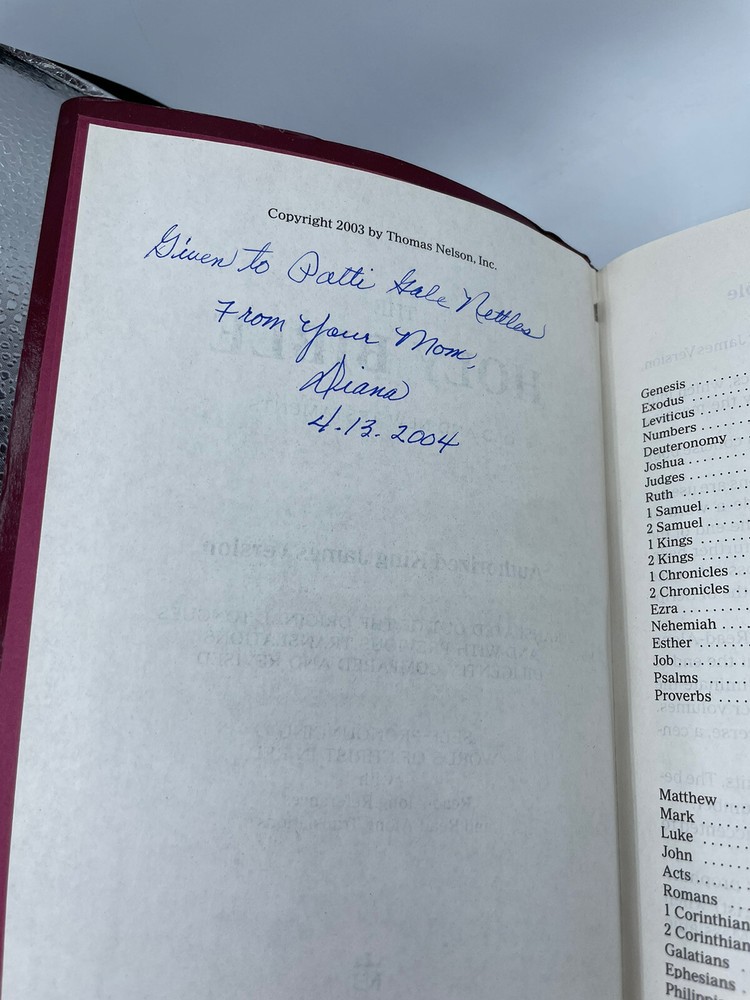 Copyright 2003 by Thomas Nelson, Inc.
Given to Patti Gale Nettles
From Your Mom,
Diana
4.13.2004
THE
HOLY BIBLE
Authorized King James Version
Genesis
Exodus
Leviticus
Numbers
Deuteronomy
Joshua
Judges
Ruth
1 Samuel
2 Samuel
1 Kings
2 Kings
1 Chronicles
2 Chronicles
Ezra
Nehemiah
Esther
Job
Psalms
Proverbs
Matthew
Mark
Luke
John
Acts
Romans
1 Corinthian
2 Corinthian
Galatians
Ephesians
Philippi